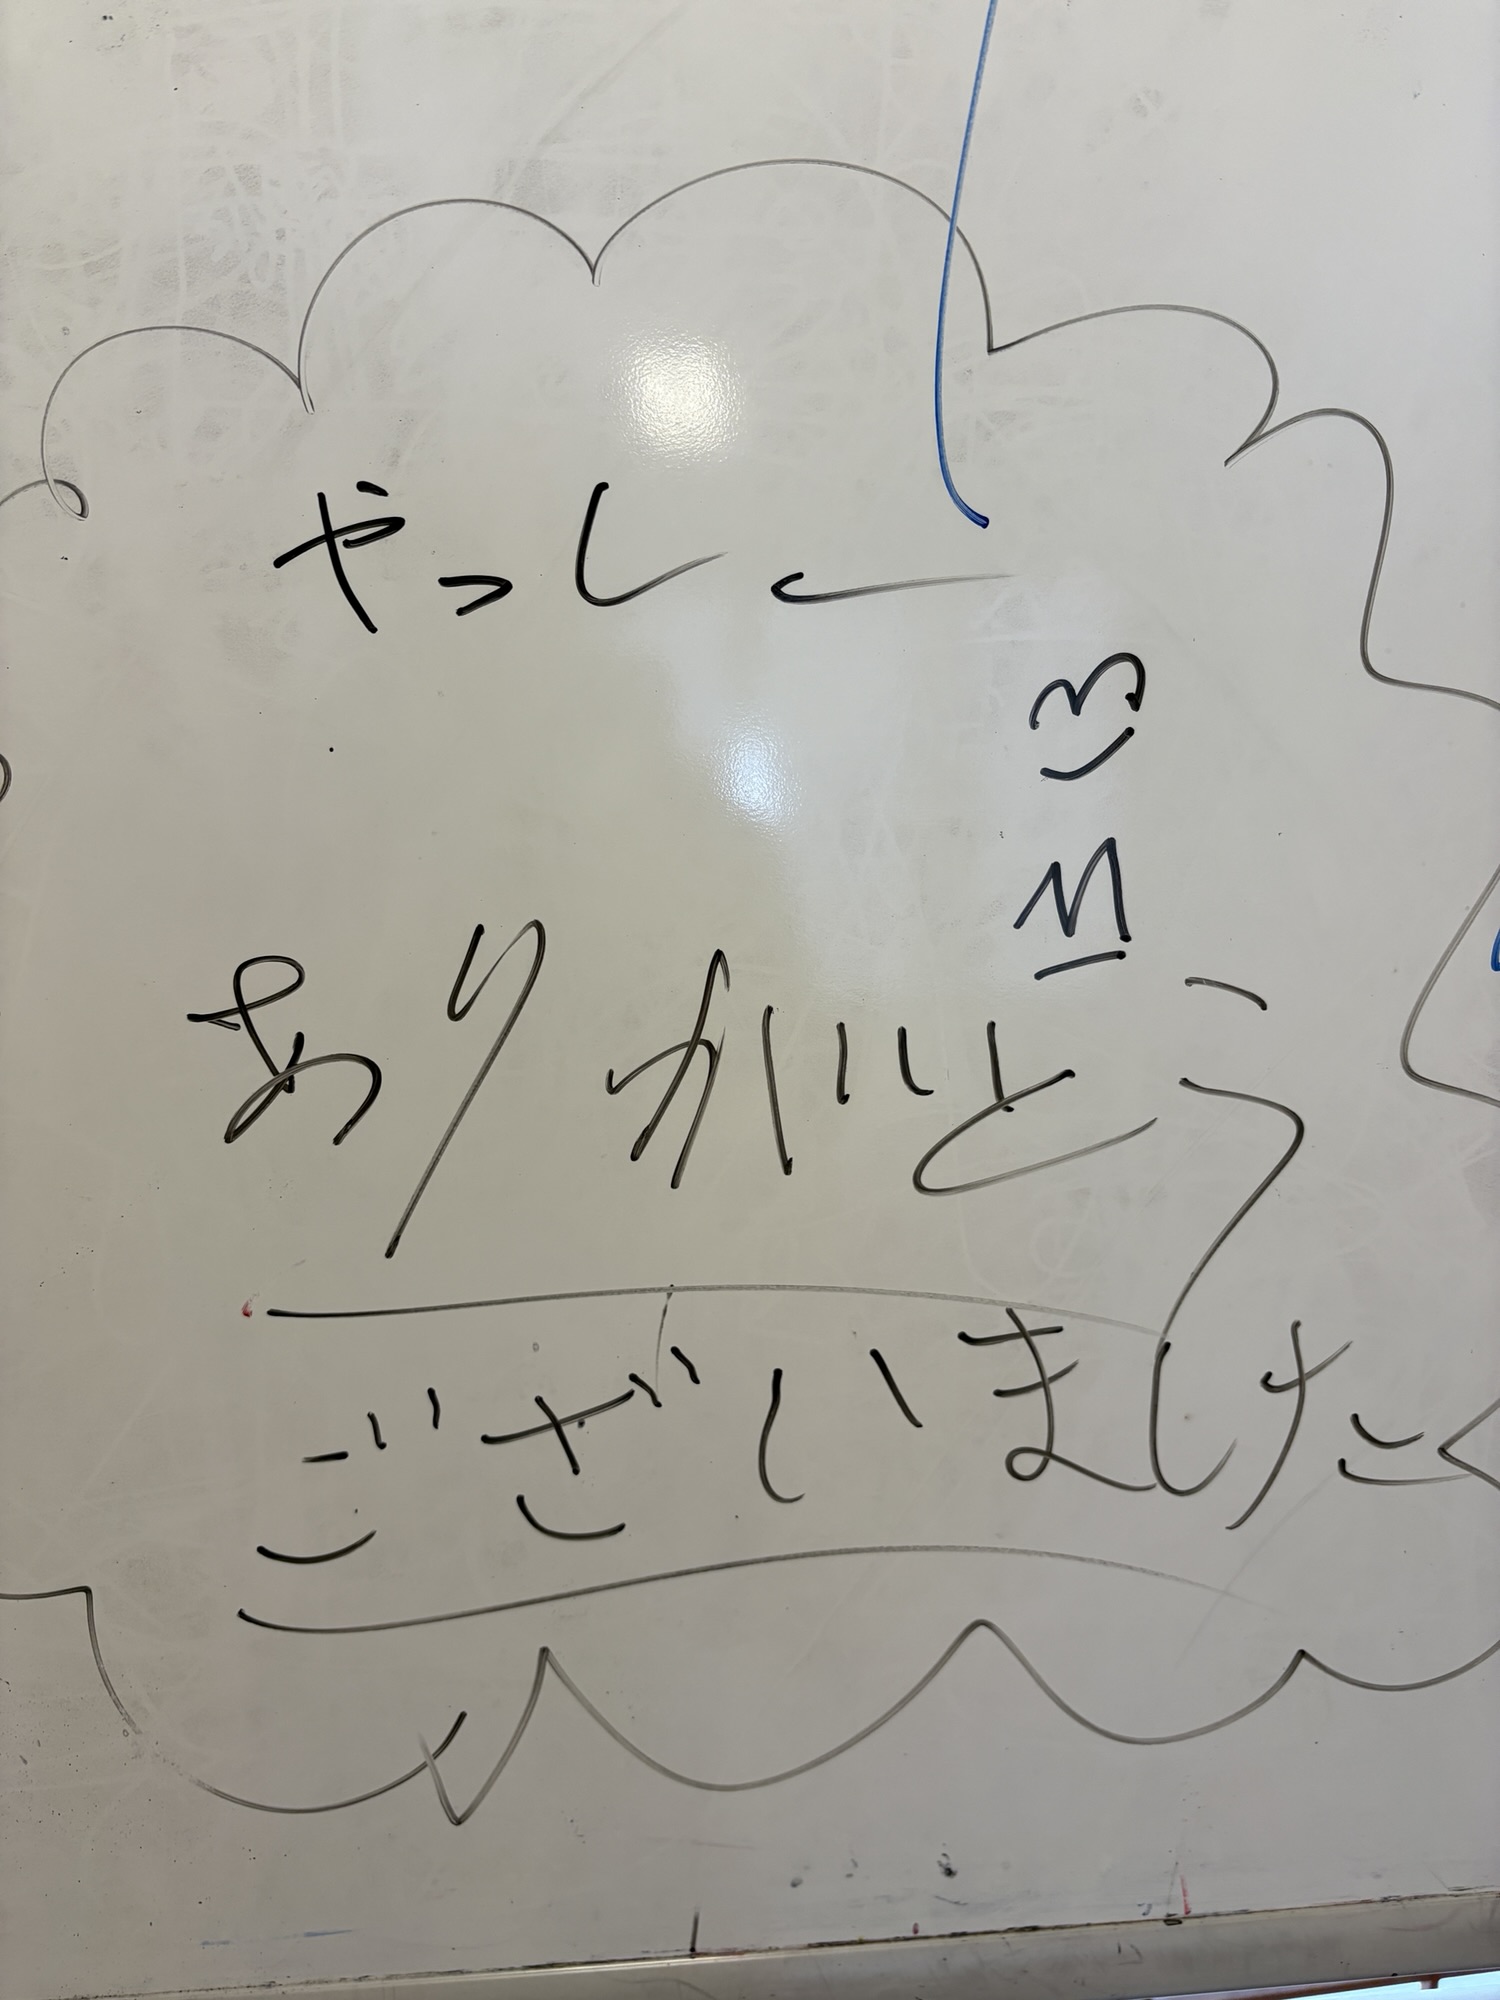 やっしー
ありがとう
ございました